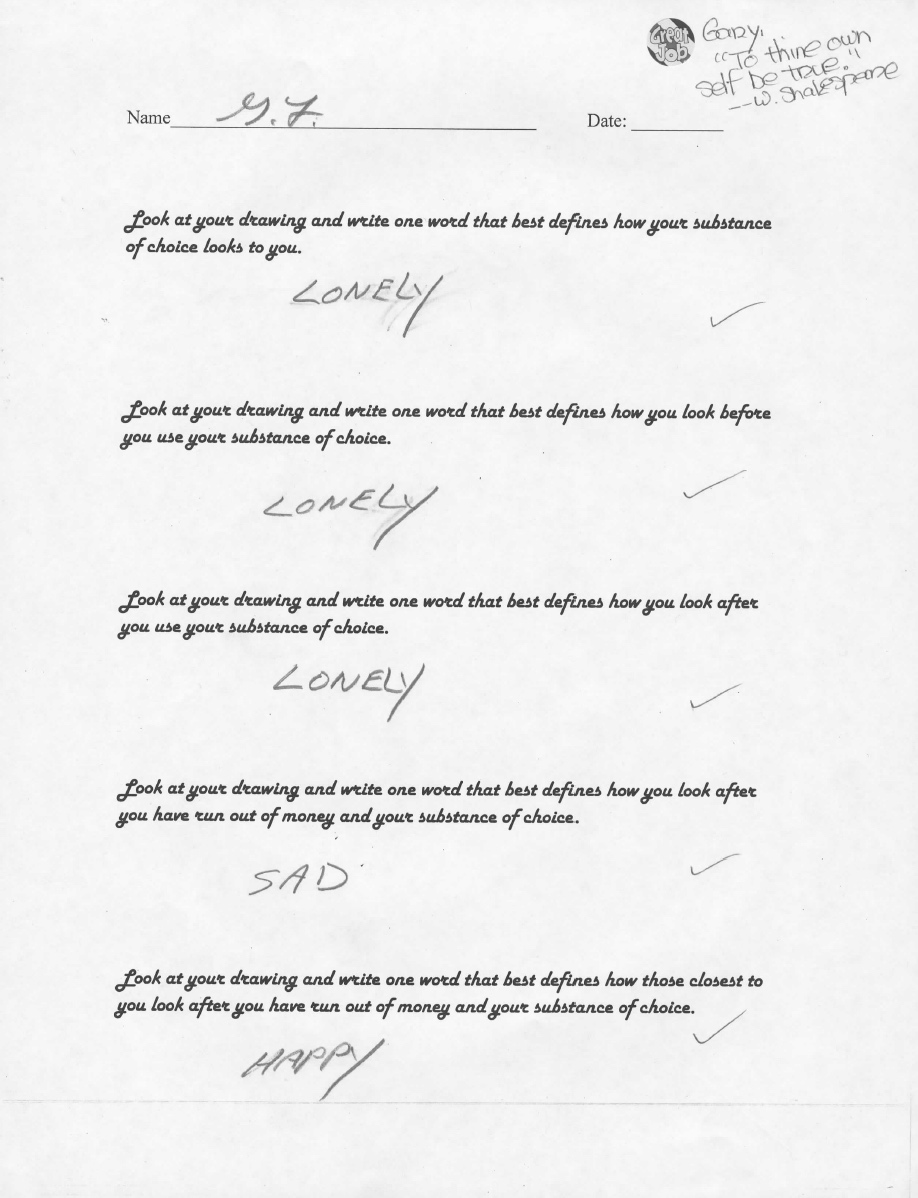 Great Job
Gary,
"To thine own
self be true."
--W. Shakespeare
Name G.F.
Date:
Look at your drawing and write one word that best defines how your substance
of choice looks to you.
LONELY
Look at your drawing and write one word that best defines how you look before
you use your substance of choice.
LONELY
Look at your drawing and write one word that best defines how you look after
you use your substance of choice.
LONELY
Look at your drawing and write one word that best defines how you look after
you have run out of money and your substance of choice.
SAD
Look at your drawing and write one word that best defines how those closest to
you look after you have run out of money and your substance of choice.
HAPPY